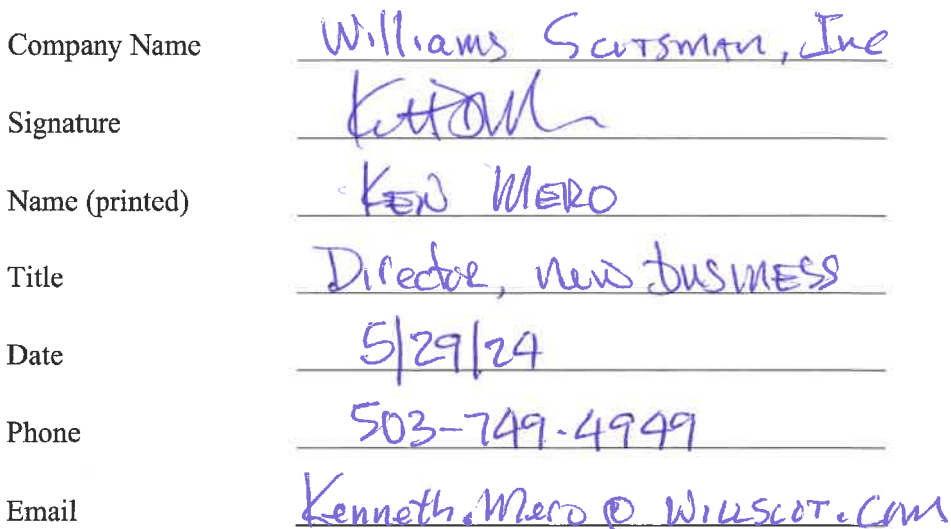 Company Name Williams Scotsman, Inc
Signature
Name (printed) KEN MERO
Title Director, new business
Date 5/29/24
Phone 503-749-4949
Email Kenneth.Mero@willscot.com